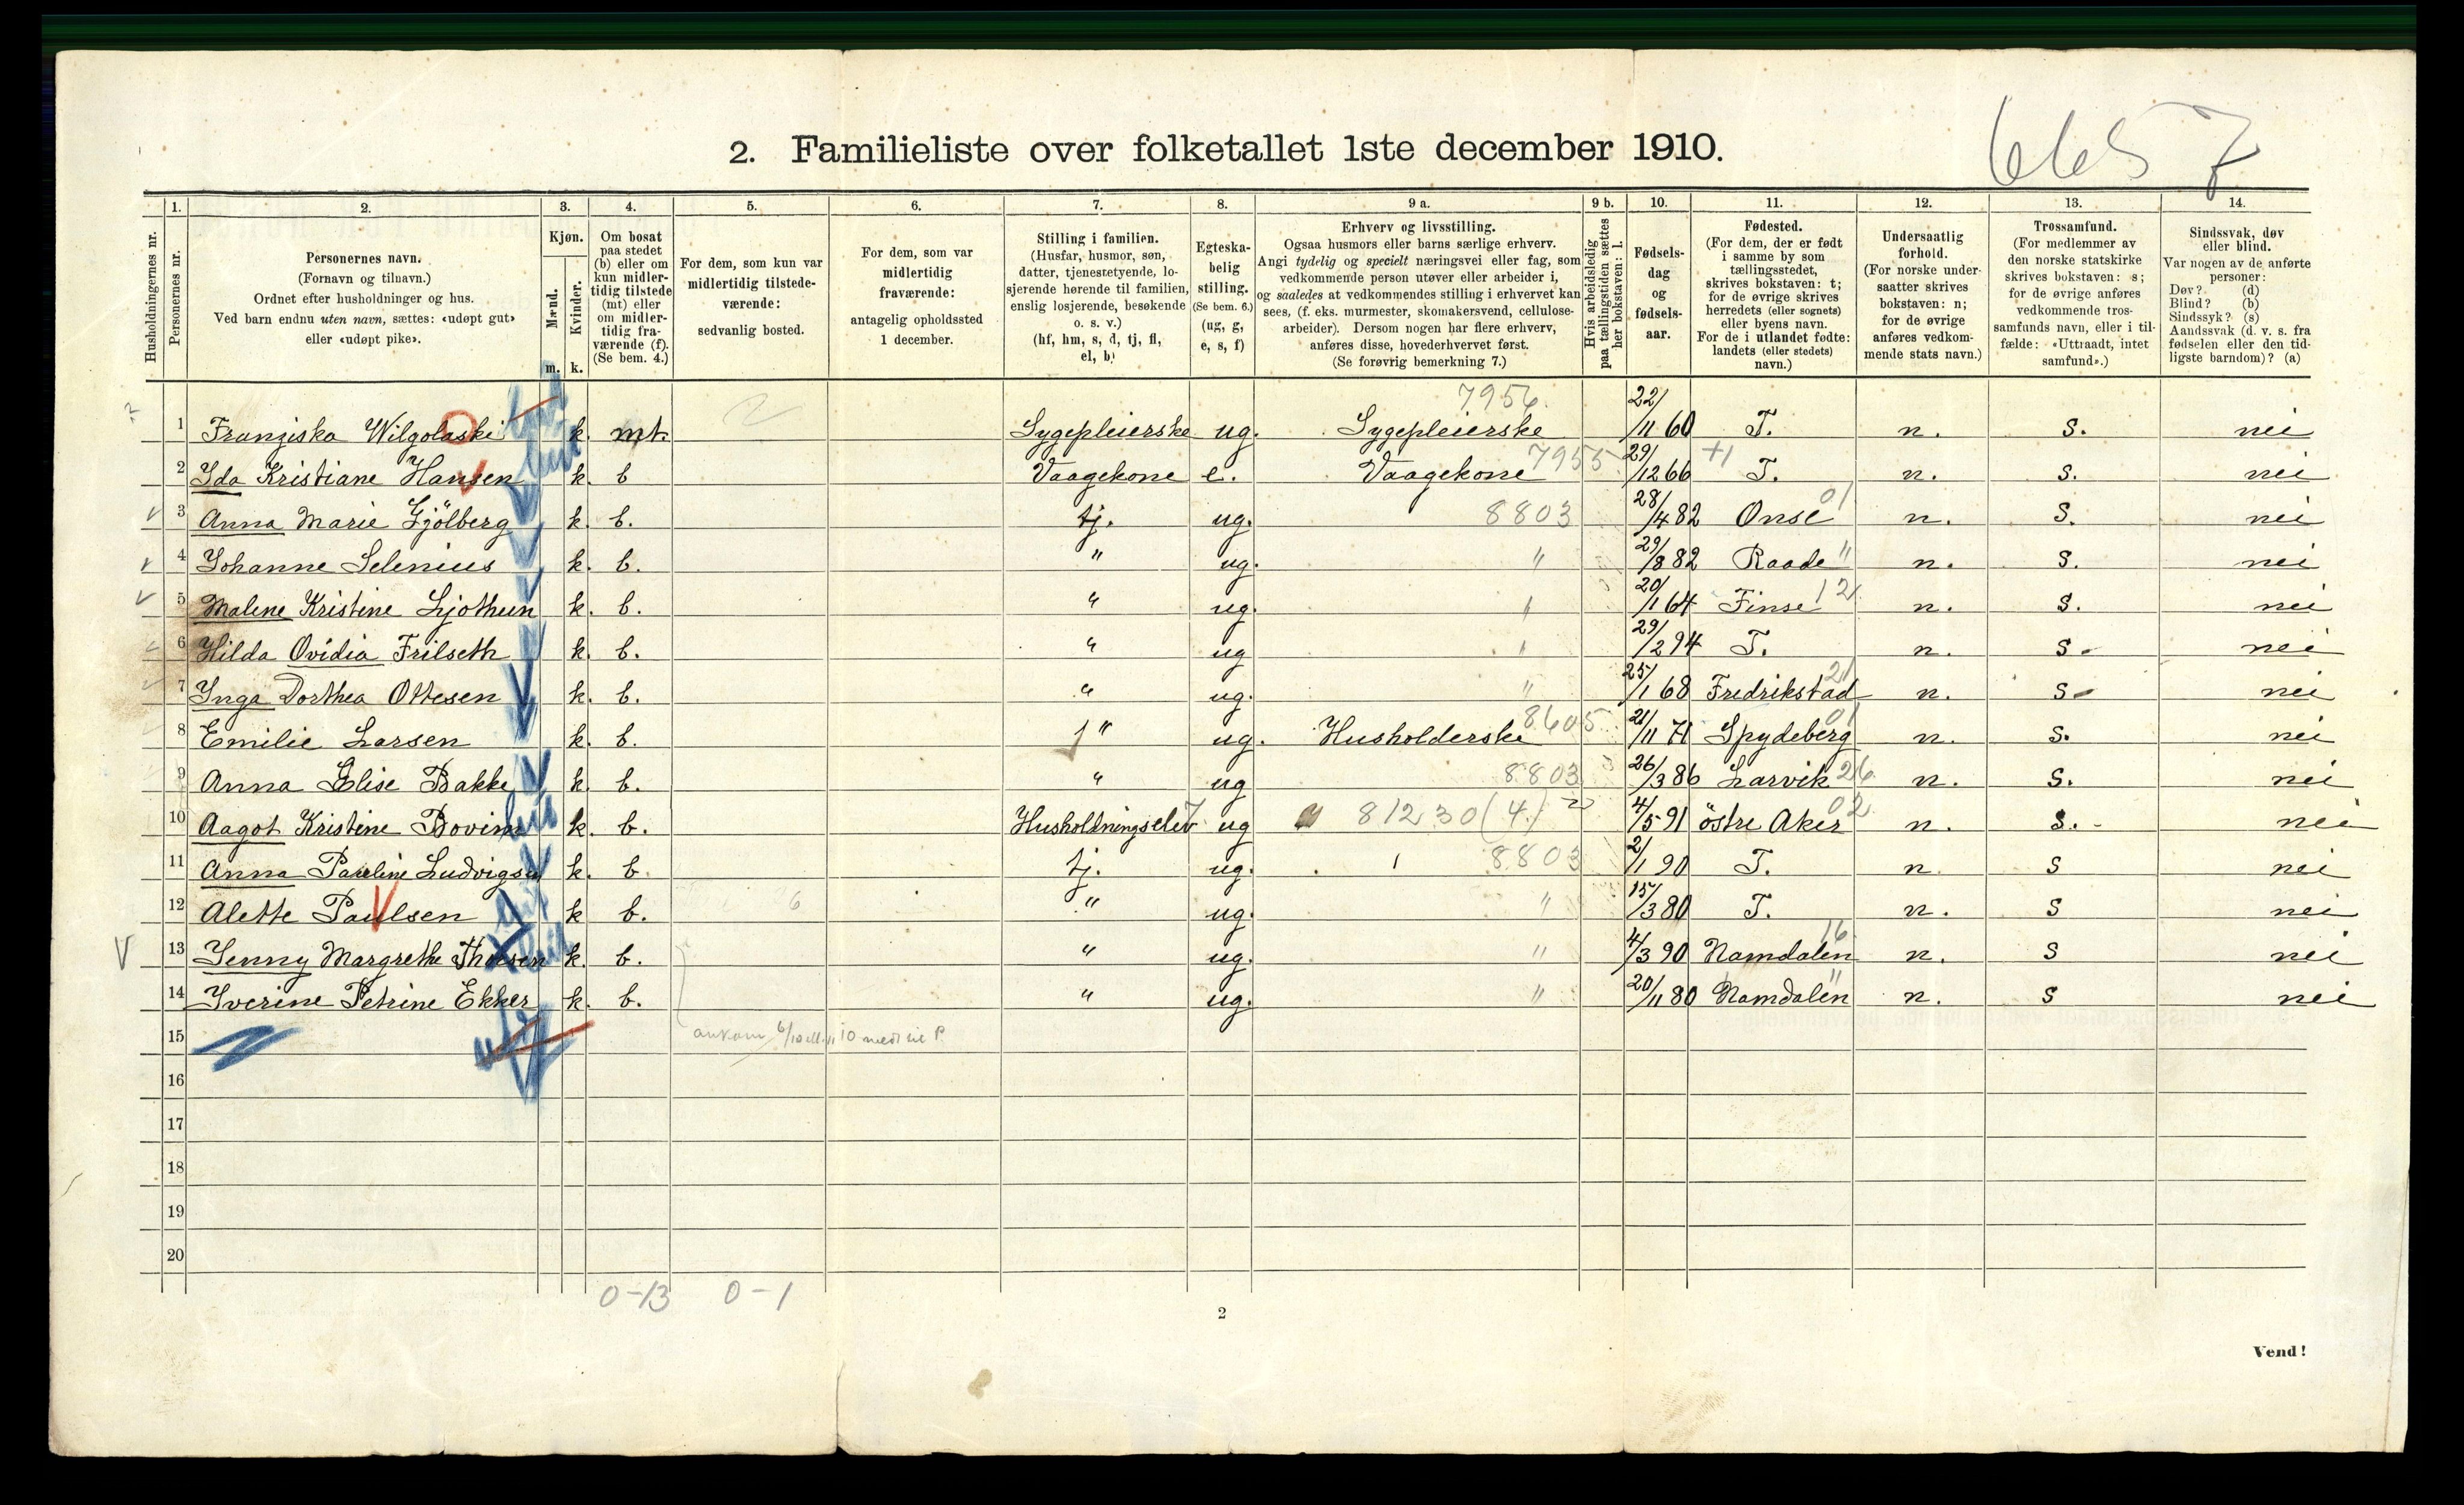 6657
2. Familieliste over folketallet 1ste december 1910.
Husholdningernes nr.
1. Personernes nr.
2. Personernes navn.
(Fornavn og tilnavn.)
Ordnet efter husholdninger og hus.
Ved barn endnu uten navn, sættes: «udøpt gut»
eller «udøpt pike».
3. Kjøn.
Mænd. m.
Kvinder. k.
4. Om bosat
paa stedet
(b) eller om
kun midler-
tidig tilstede
(mt) eller
om midler-
tidig fra-
værende (f).
(Se bem. 4.)
5. For dem, som kun var
midlertidig tilstede-
værende:
sedvanlig bosted.
6. For dem, som var
midlertidig
fraværende:
antagelig opholdssted
1 december.
7. Stilling i familien.
(Husfar, husmor, søn,
datter, tjenestetyende, lo-
sjerende hørende til familien,
enslig losjerende, besøkende
o. s. v.)
(hf, hm, s, d, tj, fl,
el, b)
8. Egteska-
belig
stilling.
(Se bem. 6.)
(ug, g,
e, s, f)
9 a. Erhverv og livsstilling.
Ogsaa husmors eller barns særlige erhverv.
Angi tydelig og specielt næringsvei eller fag, som
vedkommende person utøver eller arbeider i,
og saaledes at vedkommendes stilling i erhvervet kan
sees, (f. eks. murmester, skomakersvend, cellulose-
arbeider). Dersom nogen har flere erhverv,
anføres disse, hovederhvervet først.
(Se forøvrig bemerkning 7.)
9 b. Hvis arbeidsledig
paa tællingstiden sættes
her bokstaven: l.
10. Fødsels-
dag
og
fødsels-
aar.
11. Fødested.
(For dem, der er født
i samme by som
tællingsstedet,
skrives bokstaven: t;
for de øvrige skrives
herredets (eller sognets)
eller byens navn.
For de i utlandet fødte:
landets (eller stedets)
navn.)
12. Undersaatlig
forhold.
(For norske under-
saatter skrives
bokstaven: n;
for de øvrige
anføres vedkom-
mende stats navn.)
13. Trossamfund.
(For medlemmer av
den norske statskirke
skrives bokstaven: s;
for de øvrige anføres
vedkommende tros-
samfunds navn, eller i til-
fælde: «Uttraadt, intet
samfund».)
14. Sindssvak, døv
eller blind.
Var nogen av de anførte
personer:
Døv? (d)
Blind? (b)
Sindssyk? (s)
Aandssvak (d. v. s. fra
fødselen eller den tid-
ligste barndom)? (a)
1 Franziska Wilgolaski k. mt. Sygepleierske ug. Sygepleierske 7956 22/11 60 T. n. s. nei
2 Ida Kristiane Hansen k. b Vaagekone e. Vaagekone 7955 29/12 66 T. n. s. nei
3 Anna Marie Gjölberg k. b. tj. ug. 8803 28/4 82 Onsø 01 n. s. nei
4 Johanne Selenius k. b. " ug. " 29/8 82 Raade " n. s. nei
5 Malene Kristine Ljothun k. b. " ug. " 20/1 64 Finse 12 n. s. nei
6 Hilda Ovidia Frilseth k. b. " ug " 29/2 94 T. n. s. nei
7 Inga Dorthea Ottesen k. b. " ug. " 25/1 68 Fredrikstad 21 n. s. nei
8 Emilie Larsen k. b. " ug. Husholderske 8605 21/11 71 Spydeberg 01 n. s. nei
9 Anna Elise Bakke k. b. " ug 8803 26/3 86 Larvik 26 n. s. nei
10 Aagot Kristine Bovim k. b. Husholdningselev ug 81230 (4) 4/5 91 östre Aker 02 n. s. nei
11 Anna Pauline Ludvigsen k. b. tj. ug. 8803 2/1 90 T. n. s nei
12 Alette Paulsen k b. 6 " ug. " 15/3 80 T. n. s nei
13 Jenny Margrethe Thorsen k. b. " ug. " 4/3 90 Namdalen 16 n. s nei
14 Iverine Petrine Ekker k. b. " ug. " 20/11 80 Namdalen " n. s nei
15 ankom
16
17
18
19
20
0-13 0-1
2
Vend!